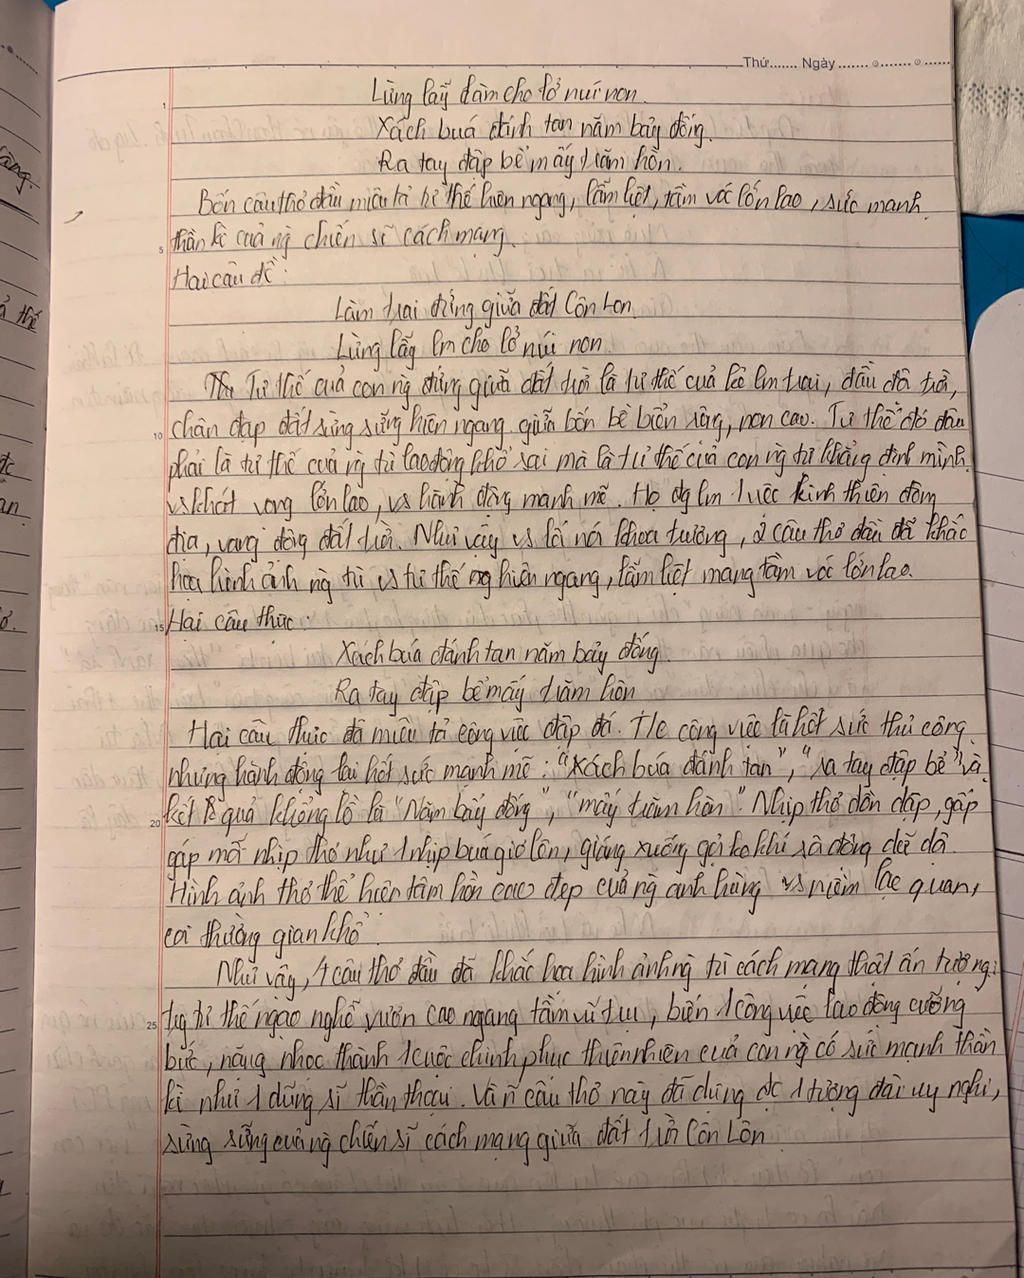 Thứ....... Ngày
Lừng lẫy làm cho lở núi non.
Xách buá đánh tan năm bảy đống.
Ra tay đập bể mấy trăm hòn.
Bốn câu thơ đầu miêu tả tư thế hiên ngang, lẫm liệt, tầm vóc lớn lao, sức mạnh
5 thần kì cuả ng chiến sĩ cách mạng.
Hai câu đề:
Làm trai đứng giữa đất Côn Lon.
Lừng lẫy lm cho lở núi non.
Tư thế cuả con ng đứng giữa đất trời là tư thế cuả kẻ lm trai, đầu đội trời,
10 chân đạp đất sừng sững hiên ngang giữa bốn bề biển rộng, non cao. Tư thế đó đâu
phải là tư thế cuả ng tù lao động khổ sai mà là tư thế của con ng tự khẳng định mình
vs khát vọng lớn lao, vs hành động mạnh mẽ. Họ đg lm 1 việc kinh thiên động
địa, vang động đất trời. Như vậy vs lối nói khoa trương, 2 câu thơ đầu đã khắc
họa hình ảnh ng tù vs tư thế hiên ngang, lẫm liệt mang tầm vóc lớn lao.
15 Hai câu thực:
Xách búa đánh tan năm bảy đống.
Ra tay đập bể mấy trăm hòn
Hai câu thực đã miêu tả công việc đập đá. công việc là hết sức thủ công
nhưng hành động lại hết sức mạnh mẽ: "Xách búa đánh tan", "ra tay đập bể" và
20 kết quả khổng lồ là "Năm bảy đống", "mấy trăm hòn". Nhịp thơ dồn dập, gấp
gáp mỗi nhịp thơ như 1 nhịp buá giơ lên, giáng xuống gợi ko khí sôi động dữ dội.
Hình ảnh thơ thể hiện tâm hồn cao đẹp cuả ng anh hùng vs niềm lạc quan,
coi thường gian khổ.
Như vậy, 4 câu thơ đầu đã khắc họa hình ảnh ng tù cách mạng thật ấn tượng:
25 tư thế ngạo nghễ vươn cao ngang tầm vũ trụ, biến 1 công việc lao động cưỡng
bức, nặng nhọc thành 1 cuộc chinh phục thiên nhiên cuả con ng có sức mạnh thần
kì như 1 dũng sĩ thần thoại. Và câu thơ này đã dựng đc 1 tượng đài uy nghi,
sừng sững cuả ng chiến sĩ cách mạng giữa đất trời Côn Lôn